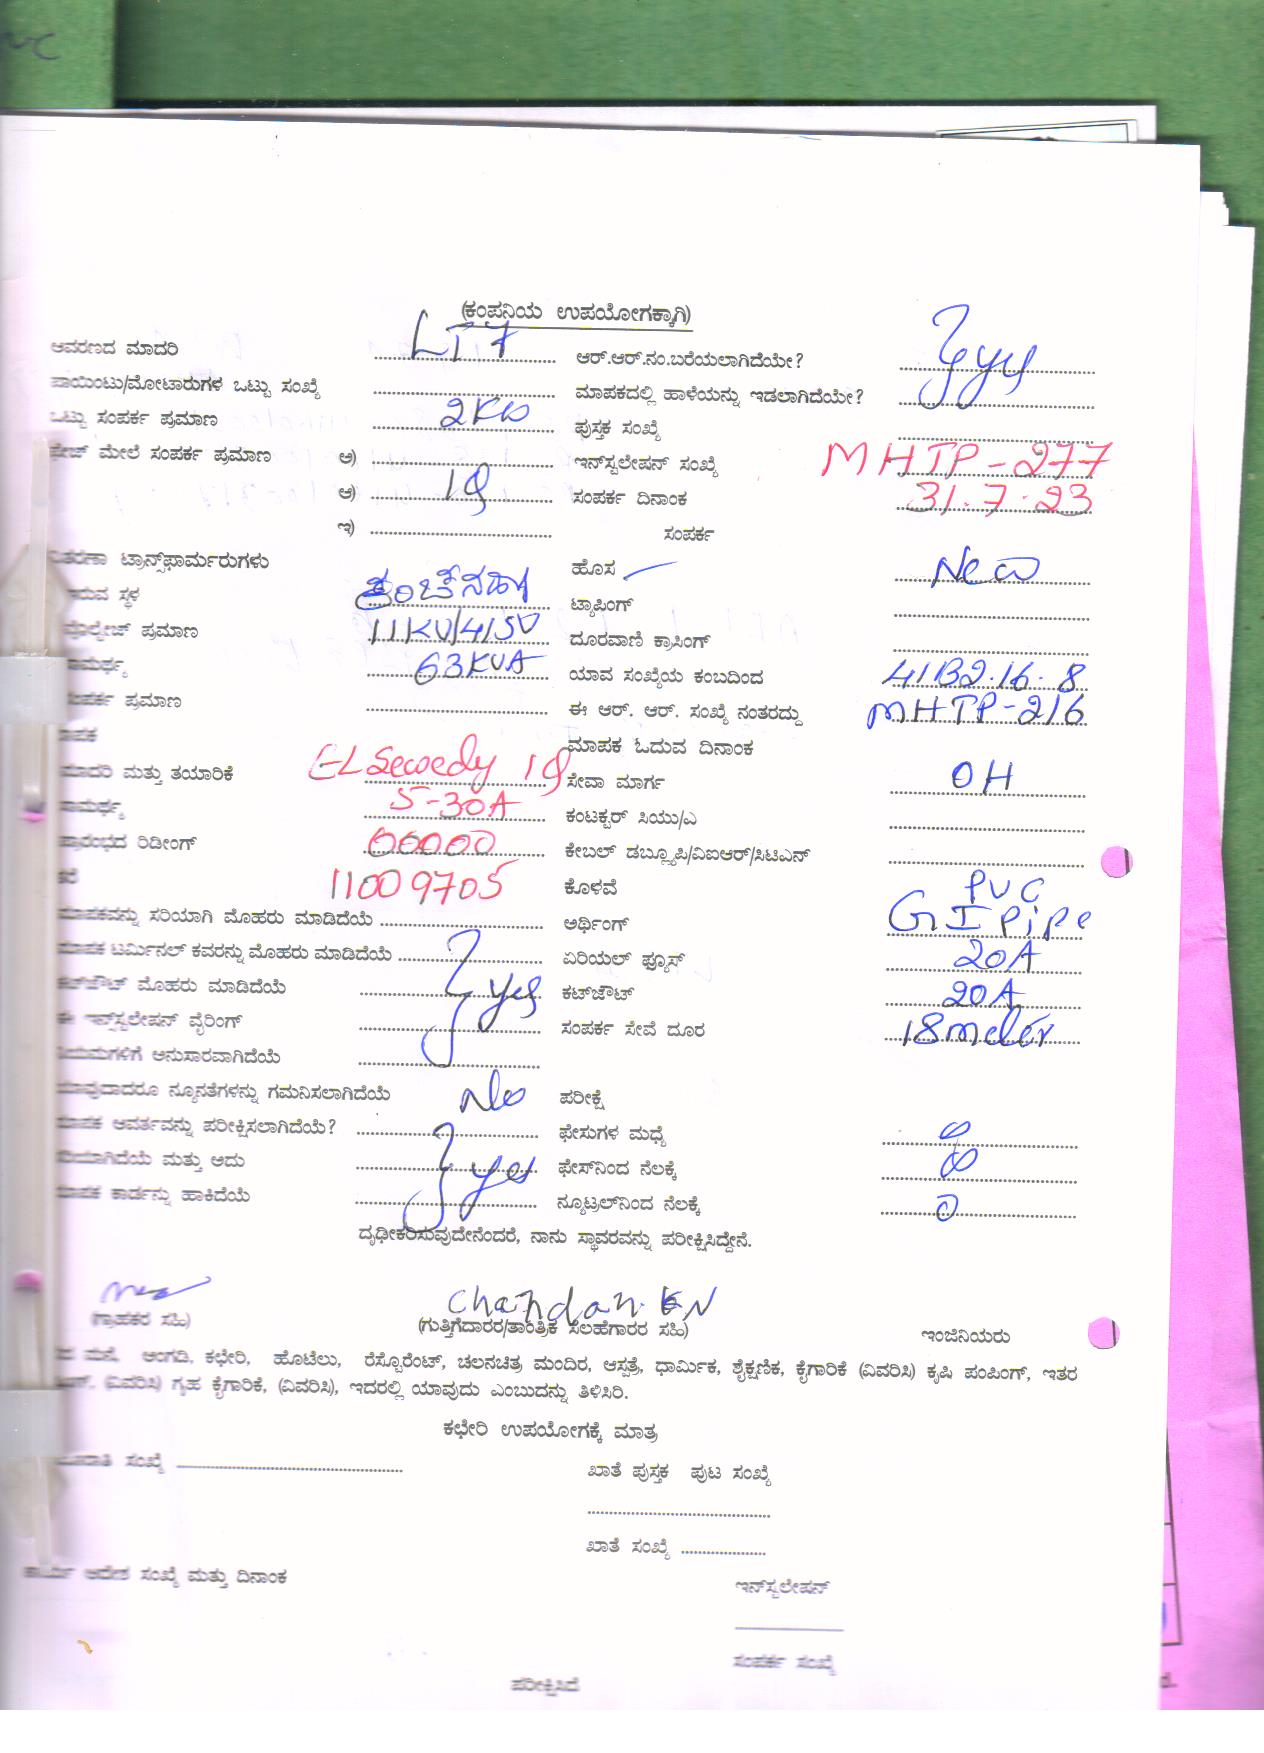 (ಕಂಪನಿಯ ಉಪಯೋಗಕ್ಕಾಗಿ)
ಆವರಣದ ಮಾದರಿ LT7 ಆರ್.ಆರ್.ನಂ.ಬರೆಯಲಾಗಿದೆಯೇ?
ಪಾಯಿಂಟು/ಮೋಟಾರುಗಳ ಒಟ್ಟು ಸಂಖ್ಯೆ ಮಾಪಕದಲ್ಲಿ ಹಾಳೆಯನ್ನು ಇಡಲಾಗಿದೆಯೇ? } yes
ಒಟ್ಟು ಸಂಪರ್ಕ ಪ್ರಮಾಣ 2KW ಪುಸ್ತಕ ಸಂಖ್ಯೆ
ಫೇಜ್ ಮೇಲೆ ಸಂಪರ್ಕ ಪ್ರಮಾಣ ಅ) ಇನ್‌ಸ್ಟಲೇಷನ್ ಸಂಖ್ಯೆ MHTP-277
ಆ) 1φ ಸಂಪರ್ಕ ದಿನಾಂಕ 31.7.23
ಇ) ಸಂಪರ್ಕ
ವಿತರಣಾ ಟ್ರಾನ್ಸ್‌ಫಾರ್ಮರುಗಳು ಹೊಸ New
ಇರುವ ಸ್ಥಳ ಟ್ಯಾಪಿಂಗ್
ವೋಲ್ಟೇಜ್ ಪ್ರಮಾಣ 11KV/415V ದೂರವಾಣಿ ಕ್ರಾಸಿಂಗ್
ಸಾಮರ್ಥ್ಯ 63KVA ಯಾವ ಸಂಖ್ಯೆಯ ಕಂಬದಿಂದ 41B2.16.8
ಸಂಪರ್ಕ ಪ್ರಮಾಣ ಈ ಆರ್. ಆರ್. ಸಂಖ್ಯೆ ನಂತರದ್ದು MHTP-216
ಮಾಪಕ ಮಾಪಕ ಓದುವ ದಿನಾಂಕ
ಮಾದರಿ ಮತ್ತು ತಯಾರಿಕೆ ELSewedy 1φ ಸೇವಾ ಮಾರ್ಗ OH
ಸಾಮರ್ಥ್ಯ 5-30A ಕಂಟಕ್ಟರ್ ಸಿಯು/ಎ
ಪ್ರಾರಂಭದ ರಿಡೀಂಗ್ 00000 ಕೇಬಲ್ ಡಬ್ಲ್ಯೂಪಿ/ವಿಐಆರ್/ಸಿಟಿಎನ್
11009705 ಕೊಳವೆ PVC
ಮಾಪಕವನ್ನು ಸರಿಯಾಗಿ ಮೊಹರು ಮಾಡಿದೆಯೆ ಅರ್ಥಿಂಗ್ GI Pipe
ಮಾಪಕ ಟರ್ಮಿನಲ್ ಕವರನ್ನು ಮೊಹರು ಮಾಡಿದೆಯೆ ಏರಿಯಲ್ ಫ್ಯೂಸ್ 20A
ಕಟ್‌ಔಟ್ ಮೊಹರು ಮಾಡಿದೆಯೆ } yes ಕಟ್‌ಔಟ್ 20A
ಈ ಇನ್ಸ್‌ಸ್ಟಲೇಷನ್ ವೈರಿಂಗ್ ಸಂಪರ್ಕ ಸೇವೆ ದೂರ 18meter
ನಿಯಮಗಳಿಗೆ ಅನುಸಾರವಾಗಿದೆಯೆ
ಯಾವುದಾದರೂ ನ್ಯೂನತೆಗಳನ್ನು ಗಮನಿಸಲಾಗಿದೆಯೆ No ಪರೀಕ್ಷೆ
ಮಾಪಕ ಆವರ್ತವನ್ನು ಪರೀಕ್ಷಿಸಲಾಗಿದೆಯೆ? ಫೇಸುಗಳ ಮಧ್ಯೆ ∞
ಸರಿಯಾಗಿದೆಯೆ ಮತ್ತು ಅದು } yes ಫೇಸ್‌ನಿಂದ ನೆಲಕ್ಕೆ ∞
ಮಾಪಕ ಕಾರ್ಡನ್ನು ಹಾಕಿದೆಯೆ ನ್ಯೂಟ್ರಲ್‌ನಿಂದ ನೆಲಕ್ಕೆ 0
ದೃಢೀಕರಿಸುವುದೇನೆಂದರೆ, ನಾನು ಸ್ಥಾವರವನ್ನು ಪರೀಕ್ಷಿಸಿದ್ದೇನೆ.
Chandan. K N
(ಗ್ರಾಹಕರ ಸಹಿ) (ಗುತ್ತಿಗೆದಾರರ/ತಾಂತ್ರಿಕ ಸಲಹೆಗಾರರ ಸಹಿ) ಇಂಜಿನಿಯರು
ಮನೆ, ಅಂಗಡಿ, ಕಛೇರಿ, ಹೊಟೆಲು, ರೆಸ್ಟೊರೆಂಟ್, ಚಲನಚಿತ್ರ ಮಂದಿರ, ಆಸ್ಪತ್ರೆ, ಧಾರ್ಮಿಕ, ಶೈಕ್ಷಣಿಕ, ಕೈಗಾರಿಕೆ (ವಿವರಿಸಿ) ಕೃಷಿ ಪಂಪಿಂಗ್, ಇತರ
(ವಿವರಿಸಿ) ಗೃಹ ಕೈಗಾರಿಕೆ, (ವಿವರಿಸಿ), ಇದರಲ್ಲಿ ಯಾವುದು ಎಂಬುದನ್ನು ತಿಳಿಸಿರಿ.
ಕಛೇರಿ ಉಪಯೋಗಕ್ಕೆ ಮಾತ್ರ
ಸಂಖ್ಯೆ ಖಾತೆ ಪುಸ್ತಕ ಪುಟ ಸಂಖ್ಯೆ
ಖಾತೆ ಸಂಖ್ಯೆ
ಕಾರ್ಯ ಆದೇಶ ಸಂಖ್ಯೆ ಮತ್ತು ದಿನಾಂಕ ಇನ್‌ಸ್ಟಲೇಷನ್
ಸಂಪರ್ಕ ಸಂಖ್ಯೆ
ಪರೀಕ್ಷಿಸಿದೆ